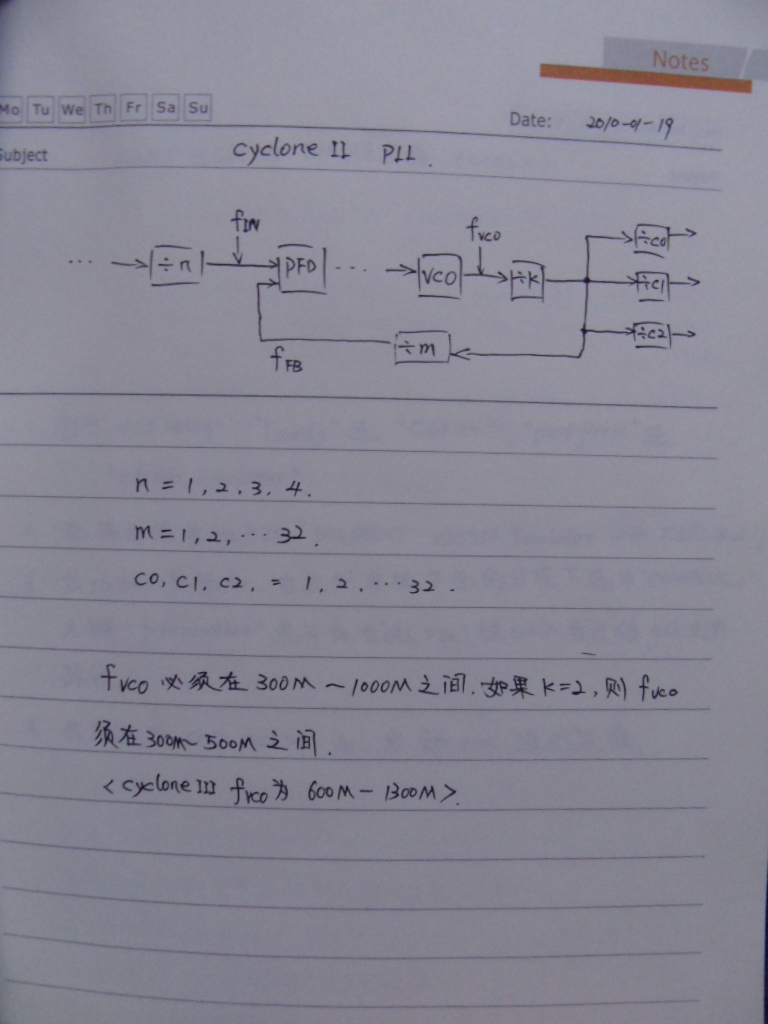 Notes
Mo Tu We Th Fr Sa Su
Date: 2010-01-19
Subject cyclone II PLL.
fIN
fVCO
... ÷n PFD ... VCO ÷K ÷C0
÷C1
÷C2
÷m
fFB
n = 1, 2, 3, 4.
m = 1, 2, ... 32.
C0, C1, C2, = 1, 2, ... 32.
fVCO 必须在 300M ~ 1000M 之间. 如果 K=2, 则 fVCO
须在 300M~500M 之间.
<cyclone III fVCO 为 600M - 1300M>.